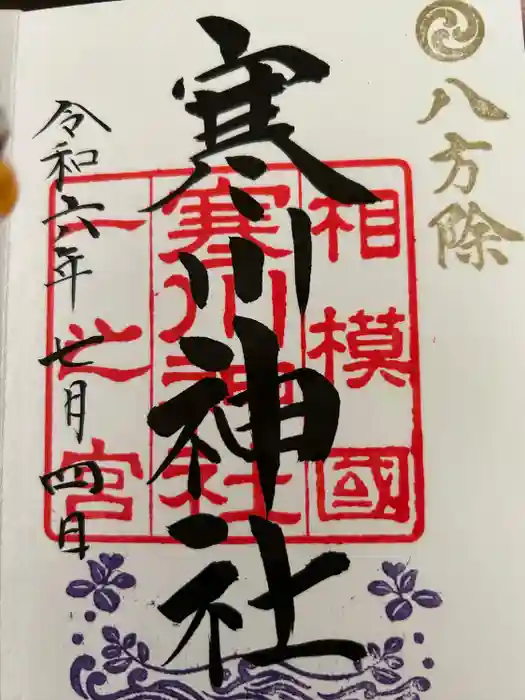 八方除
寒川神社
相模國
寒川神社
一之宮
令和六年七月四日